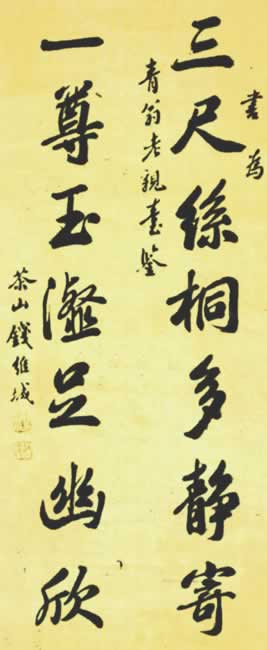 書為
三尺絲桐多靜寄
青翁老親臺鑒
一尊玉瀣足幽欣
茶山錢維城